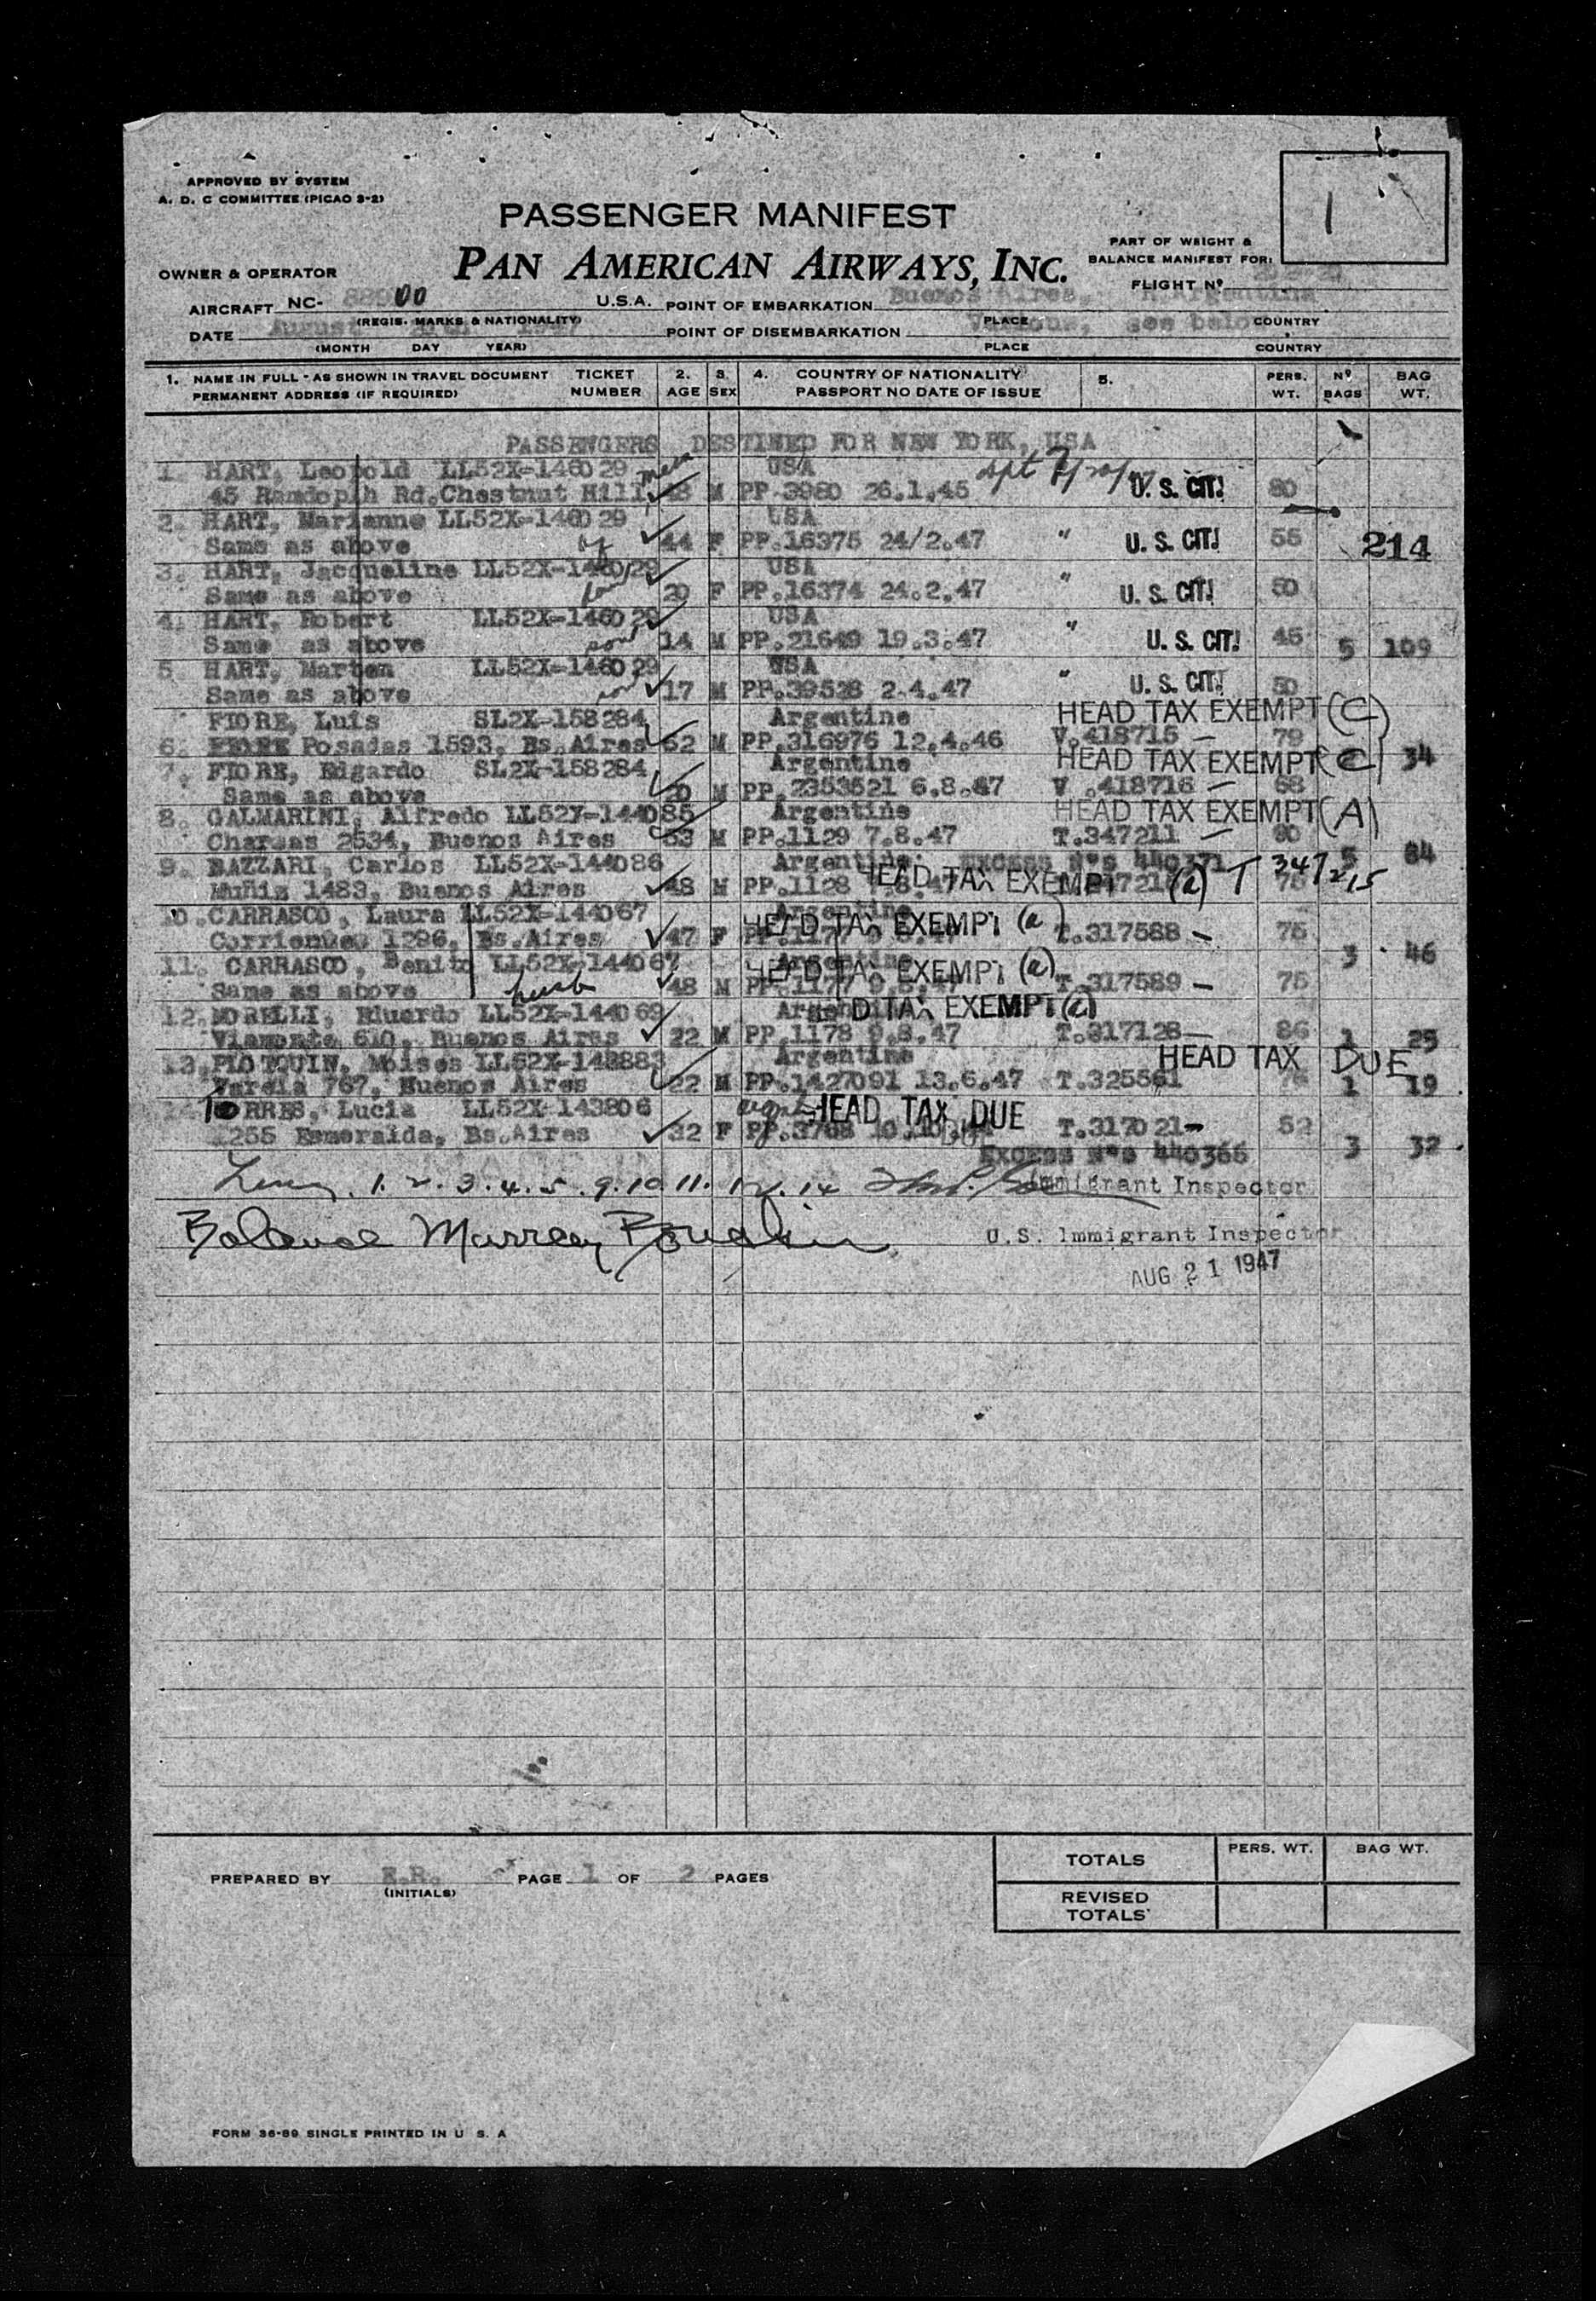 APPROVED BY SYSTEM
A. D. C COMMITTEE (PICAO 3-2)
1
PASSENGER MANIFEST
PAN AMERICAN AIRWAYS, INC.
PART OF WEIGHT &
BALANCE MANIFEST FOR:
OWNER & OPERATOR
FLIGHT Nº
AIRCRAFT NC- 00 U.S.A. POINT OF EMBARKATION Buenos Aires, R.Argentina
(REGIS. MARKS & NATIONALITY) PLACE COUNTRY
DATE August 1947 POINT OF DISEMBARKATION Various, see below
(MONTH DAY YEAR) PLACE COUNTRY
1. NAME IN FULL - AS SHOWN IN TRAVEL DOCUMENT TICKET 2. 3. 4. COUNTRY OF NATIONALITY 5. PERS. Nº BAG
PERMANENT ADDRESS (IF REQUIRED) NUMBER AGE SEX PASSPORT NO DATE OF ISSUE WT. BAGS WT.
PASSENGERS DESTINED FOR NEW YORK, USA
1. HART, Leopold LL52X-146029 USA
45 Randolph Rd.Chestnut Hill 48 M PP.3980 26.1.45 U. S. CIT! 80
2. HART, Marianne LL52X-146029 USA
Same as above 44 F PP.16375 24/2.47 " U. S. CIT! 55 214
3. HART, Jacqueline LL52X-146029 USA
Same as above 20 F PP.16374 24.2.47 " U. S. CIT! 50
4. HART, Robert LL52X-146029 USA
Same as above son 14 M PP.21649 19.3.47 " U. S. CIT! 45 5 109
5 HART, Marten LL52X-146029 USA
Same as above son 17 M PP.39528 2.4.47 " U. S. CIT! 50
FIORE, Luis SL2X-158284 Argentine HEAD TAX EXEMPT (C)
6. Posadas 1593, Bs.Aires 52 M PP.316976 12.4.46 V.418715 — 79
7. FIORE, Edgardo SL2X-158284 Argentine HEAD TAX EXEMPT (C) 34
Same as above 20 M PP.2353521 6.8.47 V .418716 — 68
8. GALMARINI, Alfredo LL52X-144085 Argentine HEAD TAX EXEMPT (A)
Charcas 2534, Buenos Aires 53 M PP.1129 7.8.47 T.347211 — 90
9. BAZZARI, Carlos LL52X-144086 Argentine EXCESS Nºs 440371 5 84
Muñiz 1483, Buenos Aires 48 M PP.1128 HEAD TAX EXEMPT (a) T 347215
10. CARRASCO, Laura LL52X-144067 Argentine
Corrientes 1296, Bs.Aires 47 F HEAD TAX EXEMPT (a) T.317588 — 75
11. CARRASCO, Benito LL52X-144067 Argentine 3 46
Same as above husb 48 M HEAD TAX EXEMPT (a) T.317589 — 75
12. MORELLI, Eduardo LL52X-144069 D TAX EXEMPT (a)
Viamonte 610, Buenos Aires 22 M PP.1178 9.8.47 T.317128— 86 1 25
13. PLOTQUIN, Moises LL52X-143883 Argentine HEAD TAX DUE
Varela 767, Buenos Aires 22 M PP.1427091 13.6.47 T.325561 1 19
14. TORRES, Lucia LL52X-143806 HEAD TAX DUE
1255 Esmeralda, Bs.Aires 32 F PP.3768 T.317021— 52 3 32
EXCESS Nºs 440366
1. 2. 3. 4. 5. 9. 10. 11. 12. 14 Immigrant Inspector
Balance Murray U.S. Immigrant Inspector
AUG 21 1947
PREPARED BY E.R. PAGE 1 OF 2 PAGES
(INITIALS)
TOTALS PERS. WT. BAG WT.
REVISED
TOTALS
FORM 36-89 SINGLE PRINTED IN U. S. A